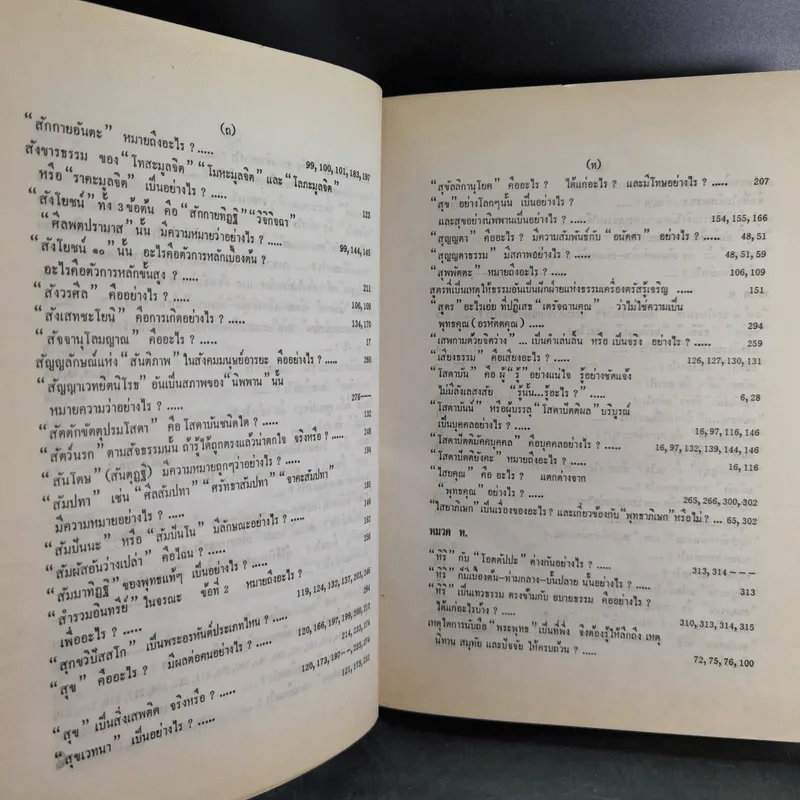 (ถ)
“สักกายอันตะ” หมายถึงอะไร ? ..... 99, 100, 101, 183, 197
สังขารธรรม ของ “โทสะมูลจิต” “โมหะมูลจิต” และ “โลภะมูลจิต”
หรือ “ราคะมูลจิต” เป็นอย่างไร ? ..... 123
“สังโยชน์” ทั้ง 3 ข้อต้น คือ “สักกายทิฏฐิ” “วิจิกิจฉา”
“ศีลพตปรามาส” นั้น มีความหมายว่าอย่างไร ? ..... 99, 144, 145
“สังโยชน์ ๑๐” นั้น อะไรคือตัวการหลักเบื้องต้น ?
อะไรคือตัวการหลักขั้นสูง ? ..... 211
“สังวรศีล” คืออย่างไร ? ..... 106, 109
“สังเสทชะโยนี” คือการเกิดอย่างไร ? ..... 134, 170
“สัจจานุโลมญาณ” คืออะไร ? ..... 17
สัญญลักษณ์แห่ง “สันติภาพ” ในสังคมมนุษย์อารยะ คืออย่างไร ? ..... 260
“สัญญาเวทยิตนิโรธ” อันเป็นสภาพของ “นิพพาน” นั้น
หมายความว่าอย่างไร ? ..... 276—
“สัตตักขัตตุปรมโสดา” คือ โสดาบันชนิดใด ? ..... 132
“สัตว์นรก” ตามสัจธรรมนั้น ถ้ารู้ได้ถูกตรงแล้วน่าตกใจ จริงหรือ ? ..... 248
“สันโดษ” (สันตุฏฐี) มีความหมายถูกๆว่าอย่างไร ? .....
“สัมปทา” เช่น “ศีลสัมปทา” “ศรัทธาสัมปทา” “จาคะสัมปทา”
มีความหมายอย่างไร ? .....
“สัมปันนะ” หรือ “สัมปันโน” มีลักษณะอย่างไร ? .....
“สัมผัสอันว่างเปล่า” คือไฉน ? .....
“สัมมาทิฏฐิ” ของพุทธแท้ๆ เป็นอย่างไร ? .....
“สำรวมอินทรีย์” ในจรณะ ข้อที่ 2 หมายถึงอะไร ?
เพื่ออะไร ? .....
“สุกขวิปัสสโก” เป็นพระอรหันต์ประเภทไหน ? .....
“สุข” คืออะไร ? มีผลต่อคนอย่างไร ? .....
“สุข” เป็นสิ่งเสพติด จริงหรือ ? .....
“สุขเวทนา” เป็นอย่างไร ? .....
(ท)
“สุขัลลิกานุโยค” คืออะไร ? ได้แก่อะไร ? และมีโทษอย่างไร ? ..... 207
“สุข” อย่างโลกๆนั้น เป็นอย่างไร ?
และสุขอย่างนิพพานเป็นอย่างไร ? ..... 154, 155, 166
“สุญญตา” คืออะไร ? มีความสัมพันธ์กับ “อนัตตา” อย่างไร ? ..... 48, 51
“สุญญตาธรรม” มีสภาพอย่างไร ? ..... 48, 51, 59
“สุพพัตตะ” หมายถึงอะไร ? ..... 106, 109
สูตรที่เป็นเหตุให้ธรรมอันเป็นฝักฝ่ายแห่งธรรมเครื่องตรัสรู้เจริญ ..... 151
“สูตร” อะไรเอ่ย ที่ปฏิเสธ “เดรัจฉานคุณ” ว่าไม่ใช่ความเป็น
พุทธคุณ (อรหัตตคุณ) ..... 294
“เสพกามด้วยจิตว่าง” ... เป็นคำเล่นลิ้น หรือ เป็นจริง อย่างไร ? ..... 259
“เสียงธรรม” คือเสียงอะไร ? ..... 126, 127, 130, 131
“โสดาบัน” คือ ผู้ “รู้” อย่างแน่ใจ รู้อย่างชัดแจ้ง
ไม่มีลังเลสงสัย “รู้นั้น...รู้อะไร ?” ..... 6, 28
“โสดาบันนี้” หรือผู้บรรลุ “โสดาปัตติผล” บริบูรณ์
เป็นบุคคลอย่างไร ? ..... 16, 97, 116, 146
“โสดาปัตติมัคคบุคคล” คือบุคคลอย่างไร ? ..... 16, 97, 132, 139, 144, 146
“โสดาปัตติยังคะ” หมายถึงอะไร ? ..... 16, 116
“ไสยคุณ” คือ อะไร ? แตกต่างจาก
“พุทธคุณ” อย่างไร ? ..... 265, 266, 300, 302
“ไสยาภิเษก” เป็นเรื่องของอะไร ? และเกี่ยวข้องกับ “พุทธาภิเษก” หรือไม่ ? ..... 65, 302
หมวด ห.
“หิริ” กับ “โอตตัปปะ” ต่างกันอย่างไร ? ..... 313, 314 — — —
“หิริ” ที่มีเบื้องต้น–ท่ามกลาง–บั้นปลาย นั้นอย่างไร ? ..... 313
“หิริ” เป็นเทวธรรม ตรงข้ามกับ อบายธรรม คืออย่างไร ?
ได้แก่อะไรบ้าง ? ..... 310, 313, 314, 315
เหตุใดการนับถือ “พระพุทธ” เป็นที่พึ่ง จึงต้องรู้ให้ลึกถึง เหตุ
นิทาน สมุทัย และปัจจัย ให้ครบถ้วน ? ..... 72, 75, 76, 100